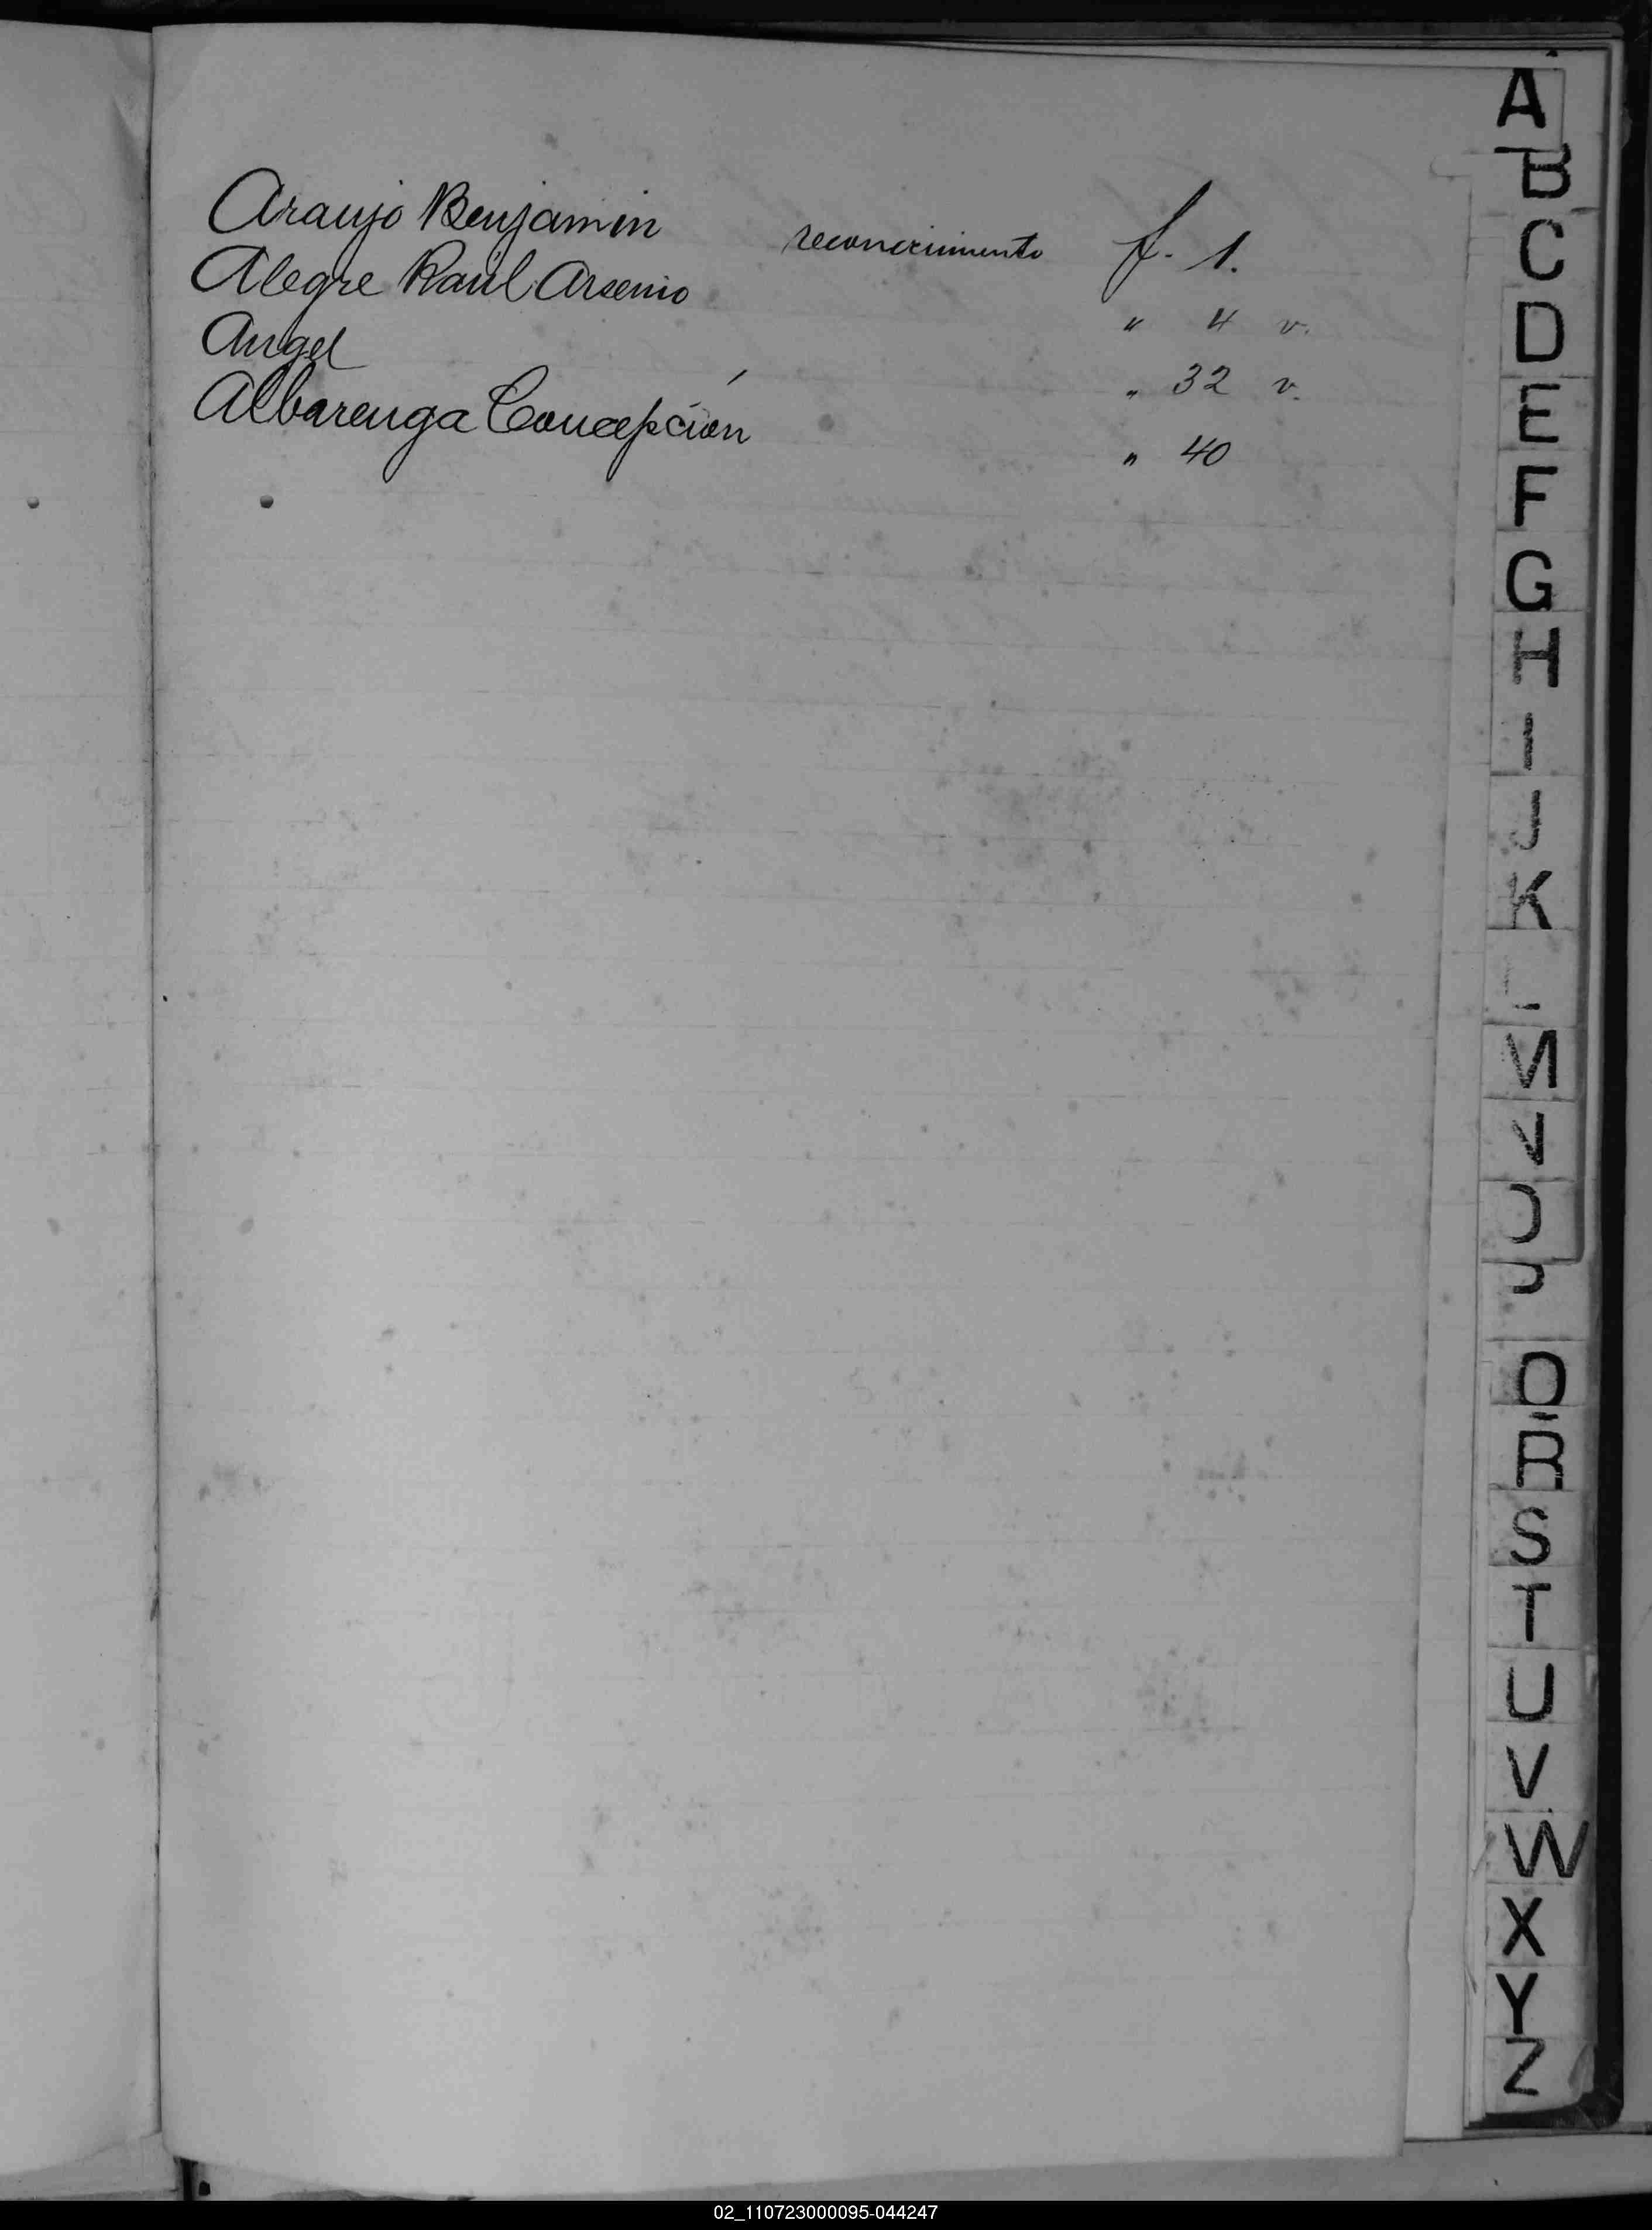 Araujo Benjamin reconocimiento f. 1.
Alegre Raúl Arsenio " 4 v.
Angel " 32 v.
Albarenga Concepción " 40
A
B
C
D
E
F
G
H
I
J
K
M
N
O
Q
R
S
T
U
V
W
X
Y
Z
02_110723000095-044247